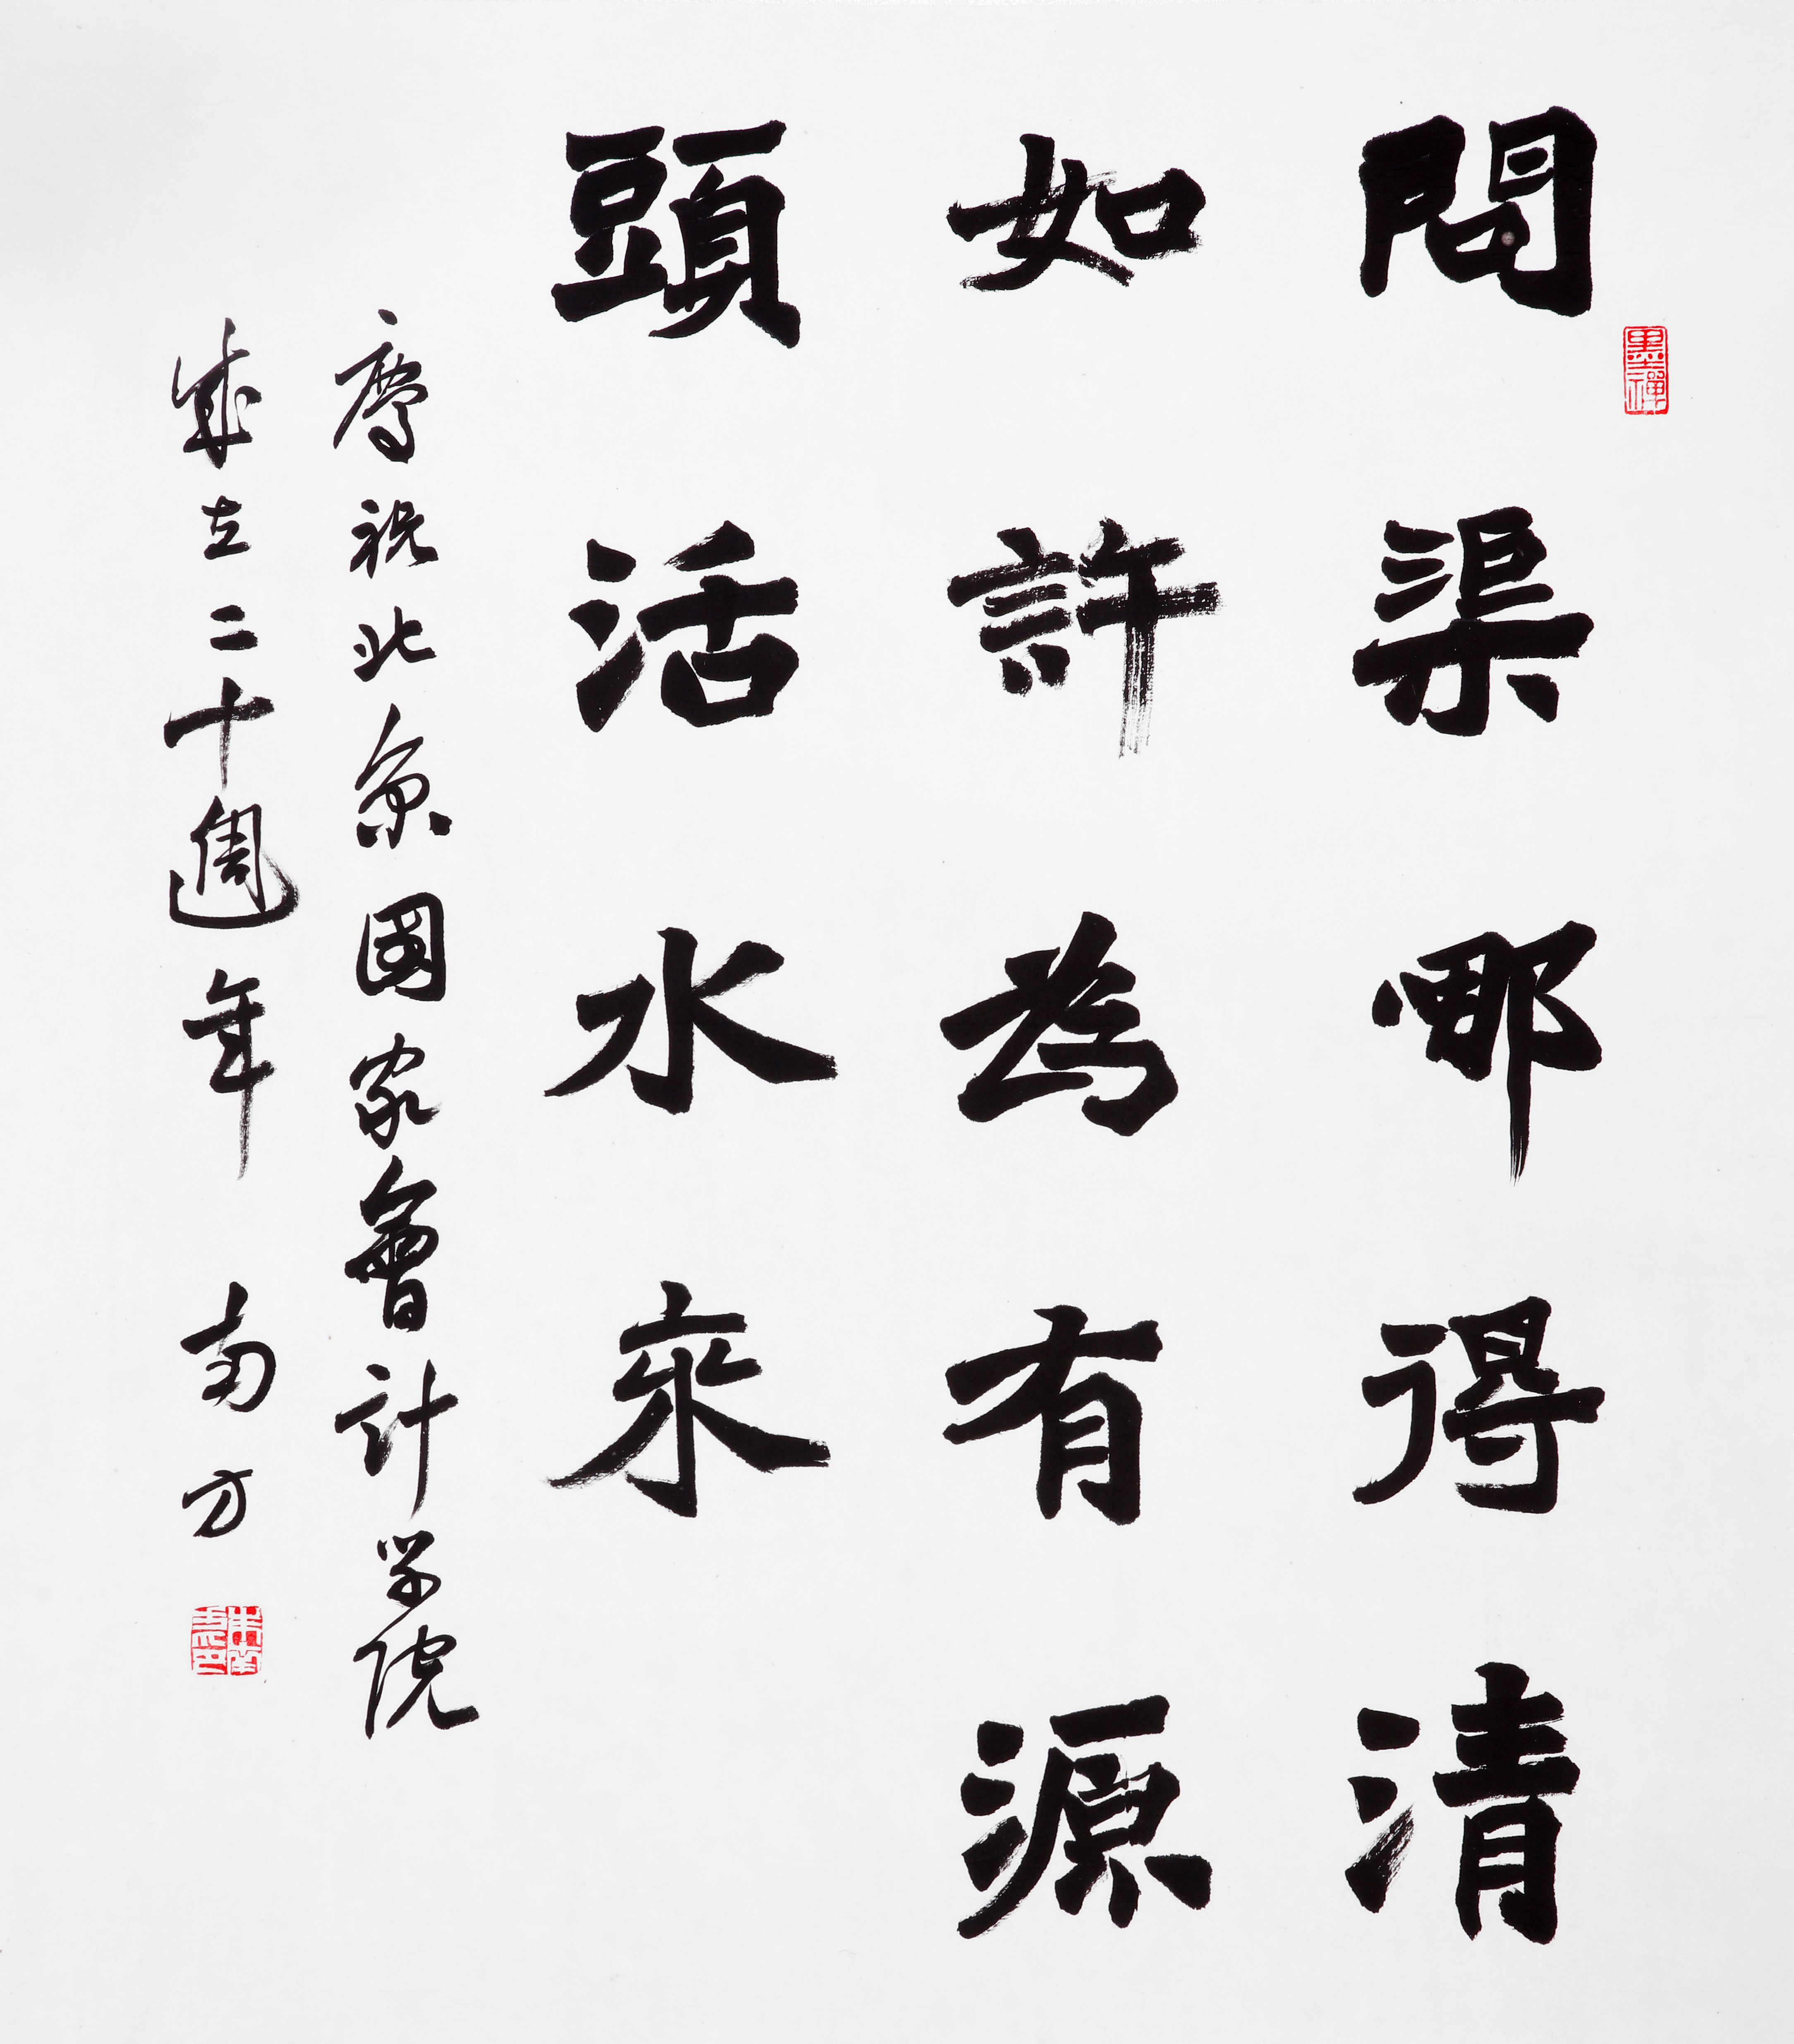 問渠哪得清
如許為有源
頭活水來
慶祝北京國家會計学院
成立二十週年 南方
墨禪